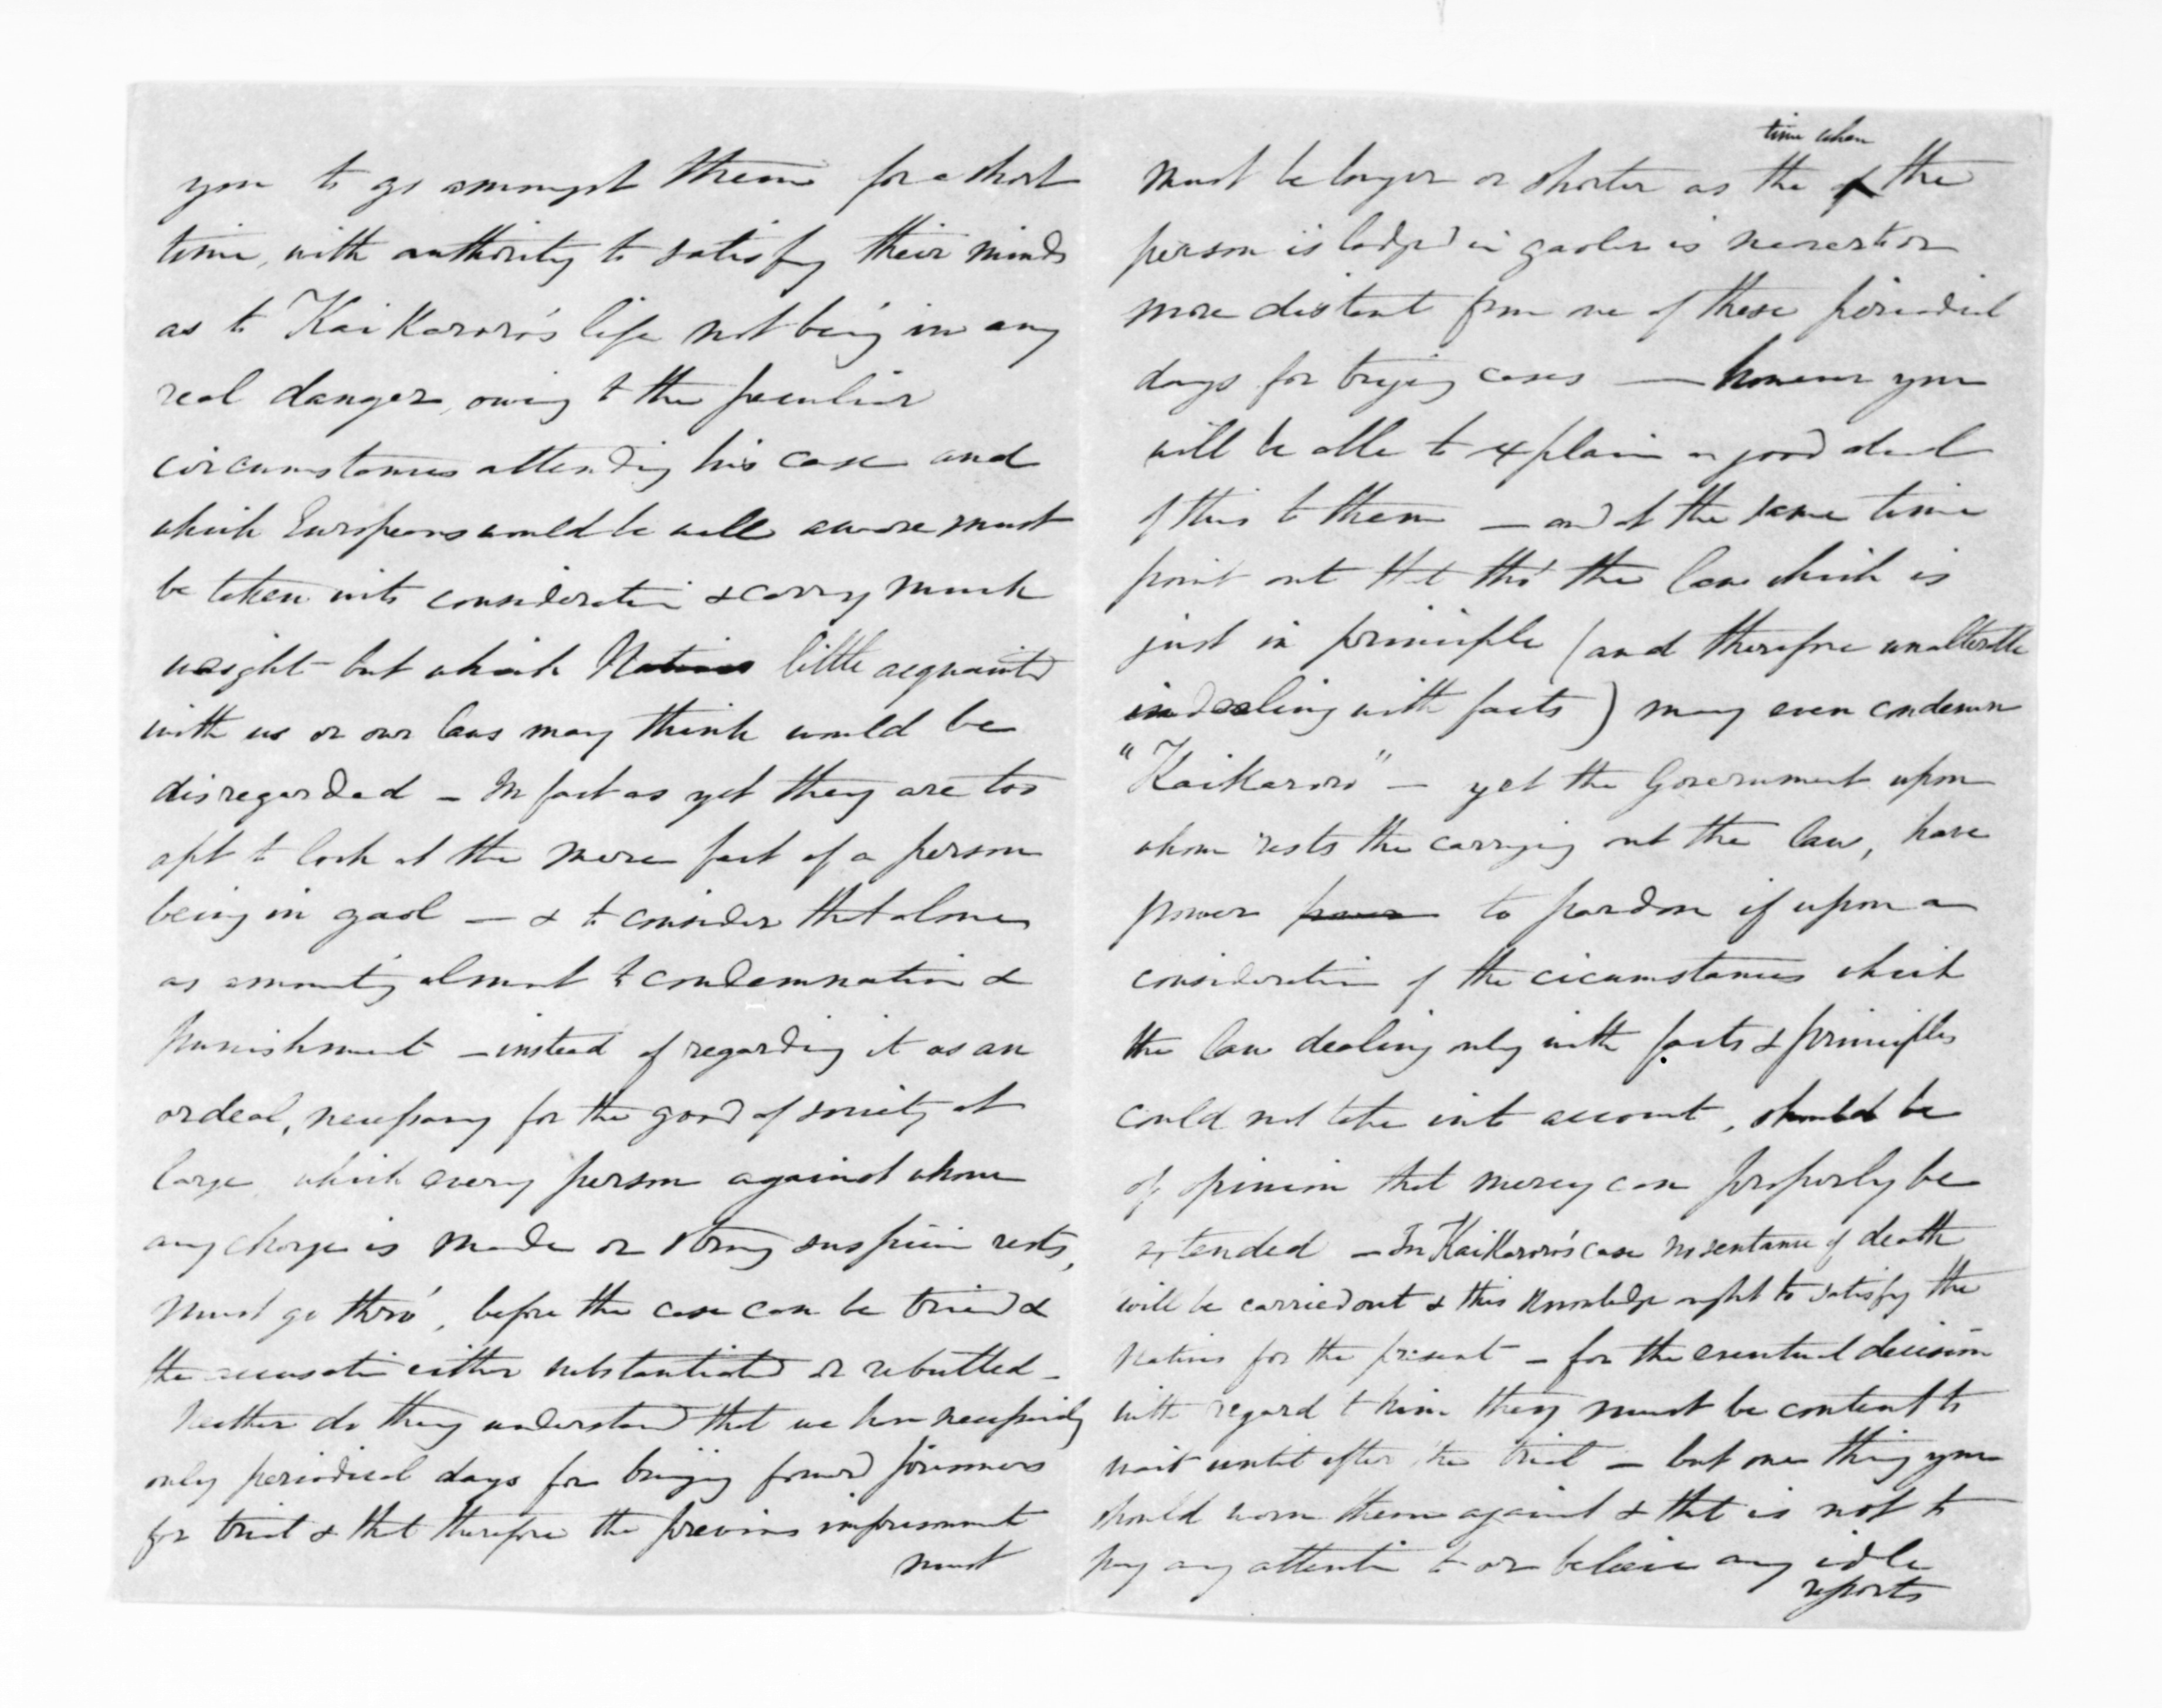 you to go amongst them for a short
time, with authority to satisfy their minds
as to Kai Kararo's life not being in any
real danger, owing to the peculiar
circumstances attending his case and
which Europeans would be well aware must
be taken into consideration & carry much
weight - but which Natives little acquainted
with us or our laws may think would be
disregarded - In fact as yet they are too
apt to look at the mere fact of a person
being in gaol - & to consider that alone
as amounting almost to condemnation &
punishment - instead of regarding it as an
ordeal, necessary for the good of society at
large which every person against whom
any charge is made or strong suspicion rests,
must go thro', before the case can be tried &
the accusation either substantiated or rebutted -
Neither do they understand that we have necessarily
only periodical days for bringing forward prisoners
for trial & that therefore the previous imprisonment
must
time when
must be longer or shorter as the of the
person is lodged in gaoler is nearest or
more distant from one of these periodical
days for trying cases - however you
will be able to explain a good deal
of this to them - and at the same time
point out that tho' the law which is
just in principle (and therefore unalterable
in dealing with facts) may even condemn
"KaiKararo" - yet the Government upon
whom rests the carrying out the law, have
power power to pardon if upon a
consideration of the cicumstances which
the law dealing only with facts & principles
could not take into account, should be
of opinion that mercy can properly be
extended - In KaiKararo's case no sentance of death
will be carried out & this knowledge ought to satisfy the
Natives for the present - for the eventual decision
with regard to him they must be content to
wait until after the trial - but one thing you
should warn them against & that is not to
pay any attention to or beleive any idle
reports